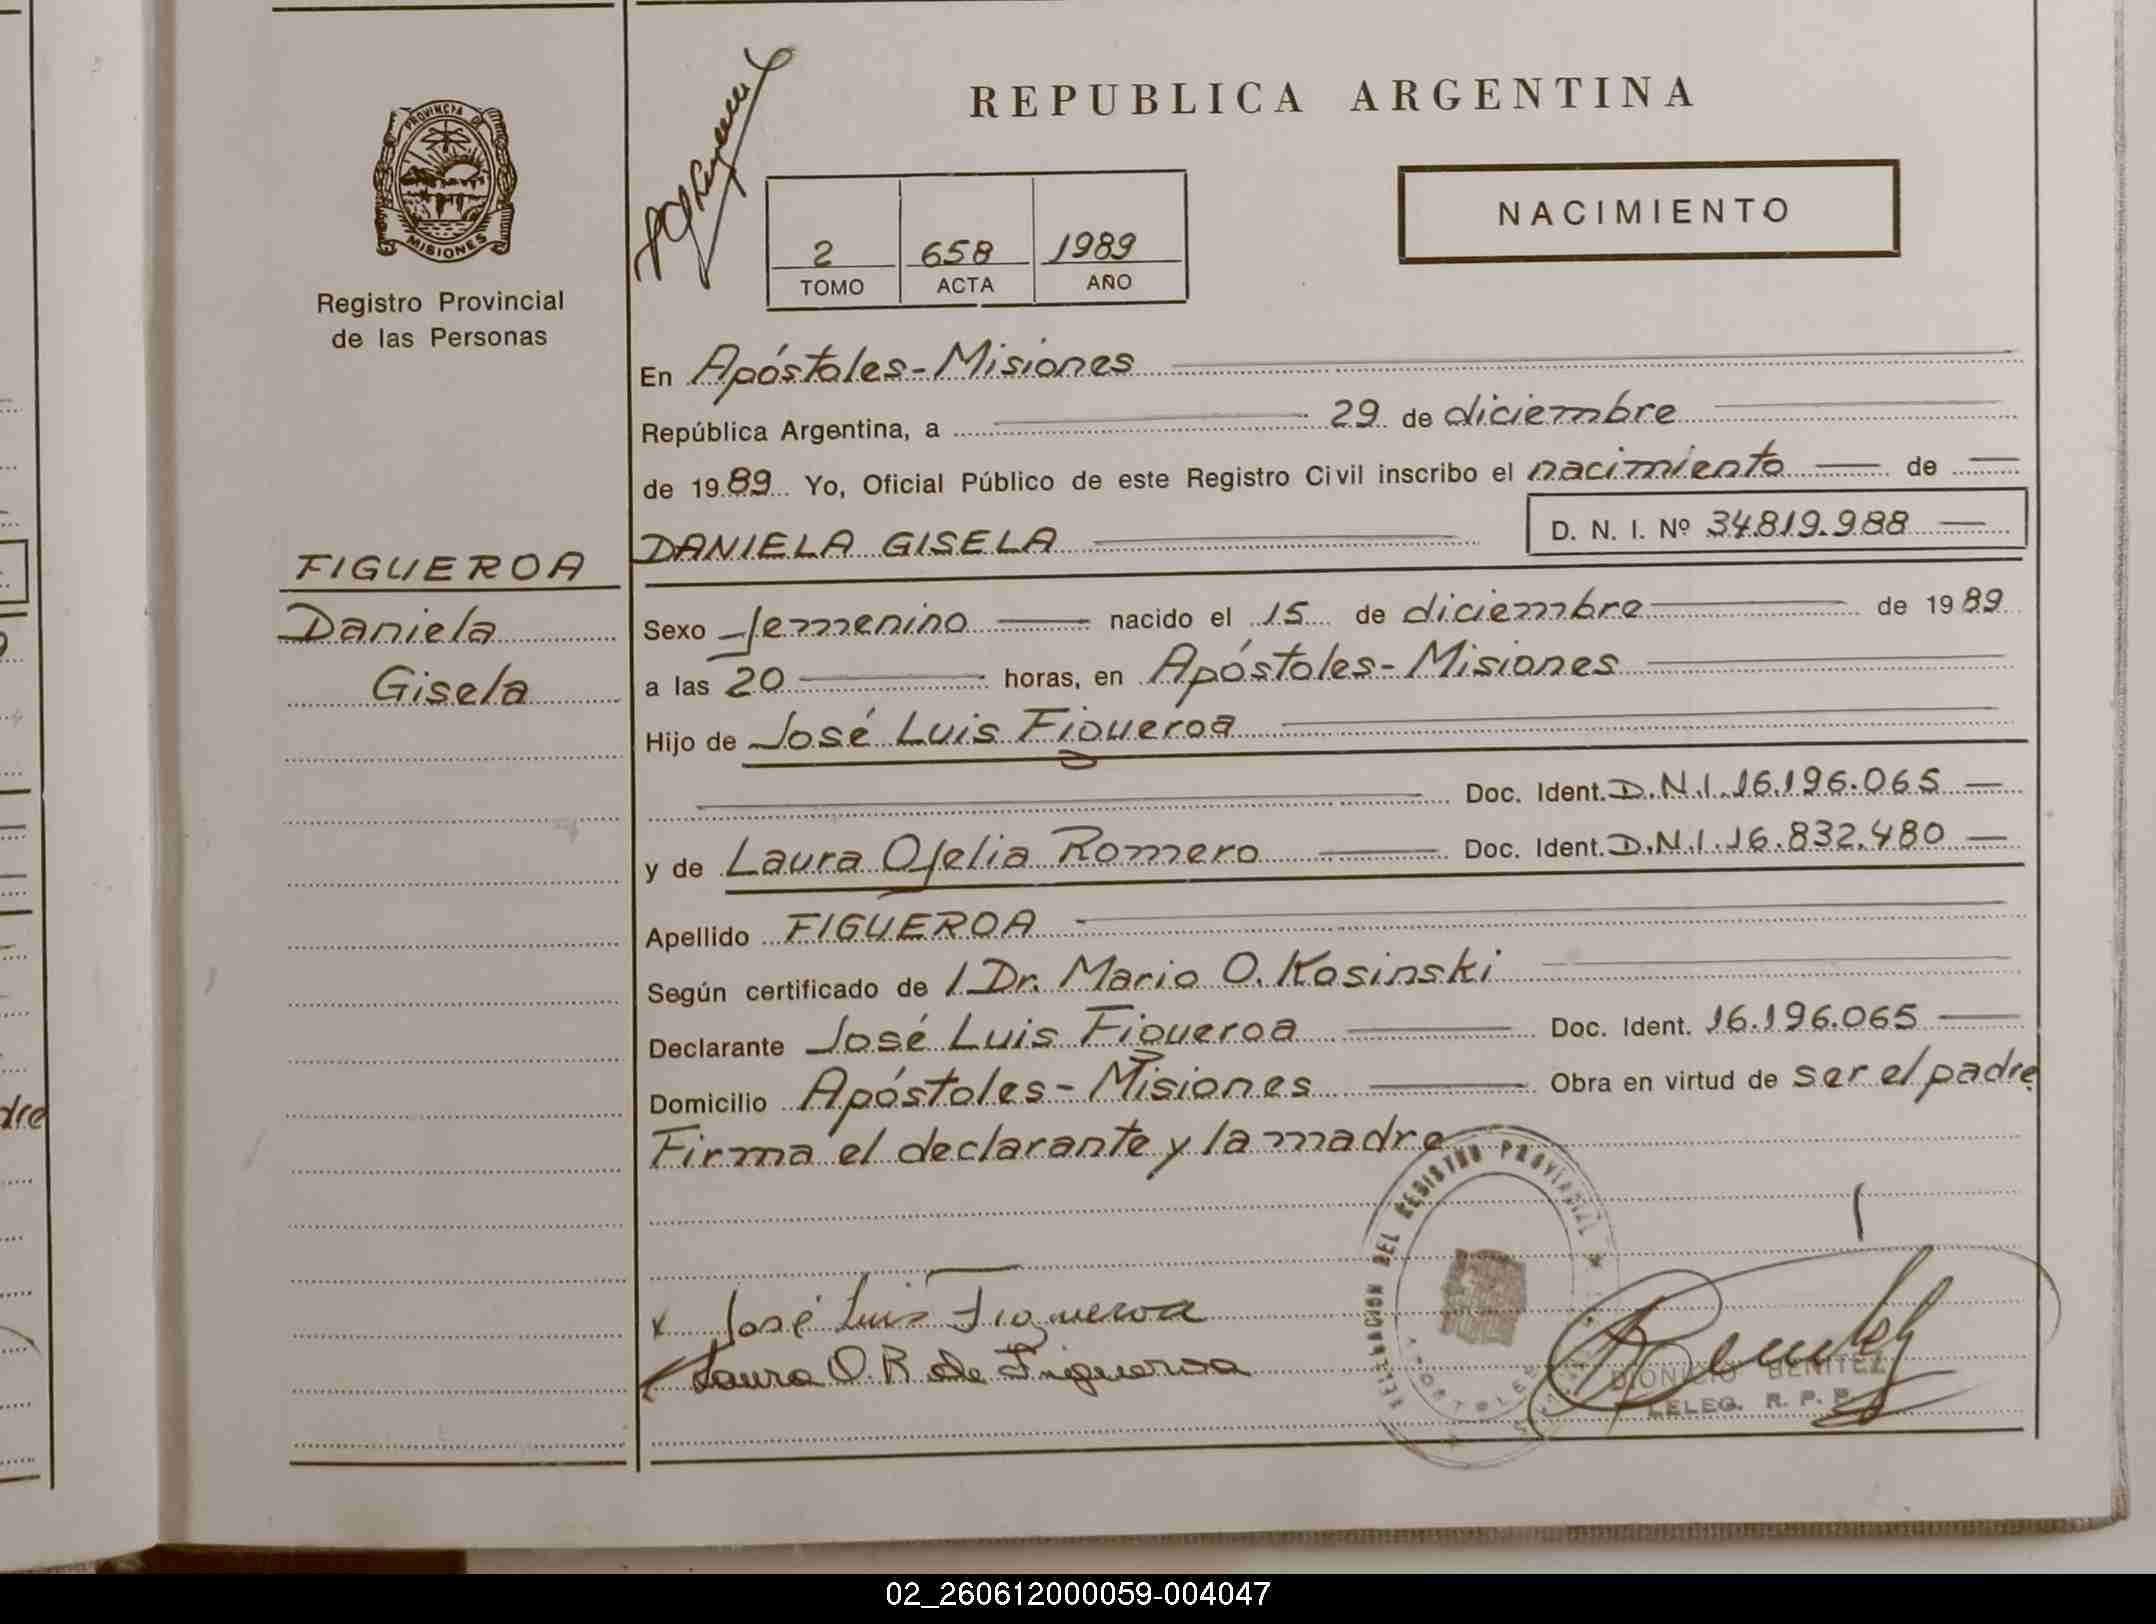 REPUBLICA ARGENTINA
PROVINCIA DE
MISIONES
Registro Provincial
de las Personas
2 658 1989
TOMO ACTA AÑO
NACIMIENTO
En Apóstoles-Misiones
República Argentina, a 29 de diciembre
de 1989 Yo, Oficial Público de este Registro Civil inscribo el nacimiento de
DANIELA GISELA D. N. I. Nº 34.819.988
FIGUEROA
Daniela
Gisela
Sexo femenino nacido el 15 de diciembre de 1989
a las 20 horas, en Apóstoles-Misiones
Hijo de José Luis Figueroa
Doc. Ident. D.N.I. 16.196.065
y de Laura Ofelia Romero Doc. Ident. D.N.I. 16.832.480
Apellido FIGUEROA
Según certificado de l Dr. Mario O. Kosinski
Declarante José Luis Figueroa Doc. Ident. 16.196.065
Domicilio Apóstoles-Misiones Obra en virtud de ser el padre
Firma el declarante y la madre
DELEGACION DEL REGISTRO PROVINCIAL
APOSTOLES
x José Luis Figueroa
Laura O. R. de Figueroa
DIONICIO BENITEZ
DELEG. R. P. P.
dre
02_260612000059-004047